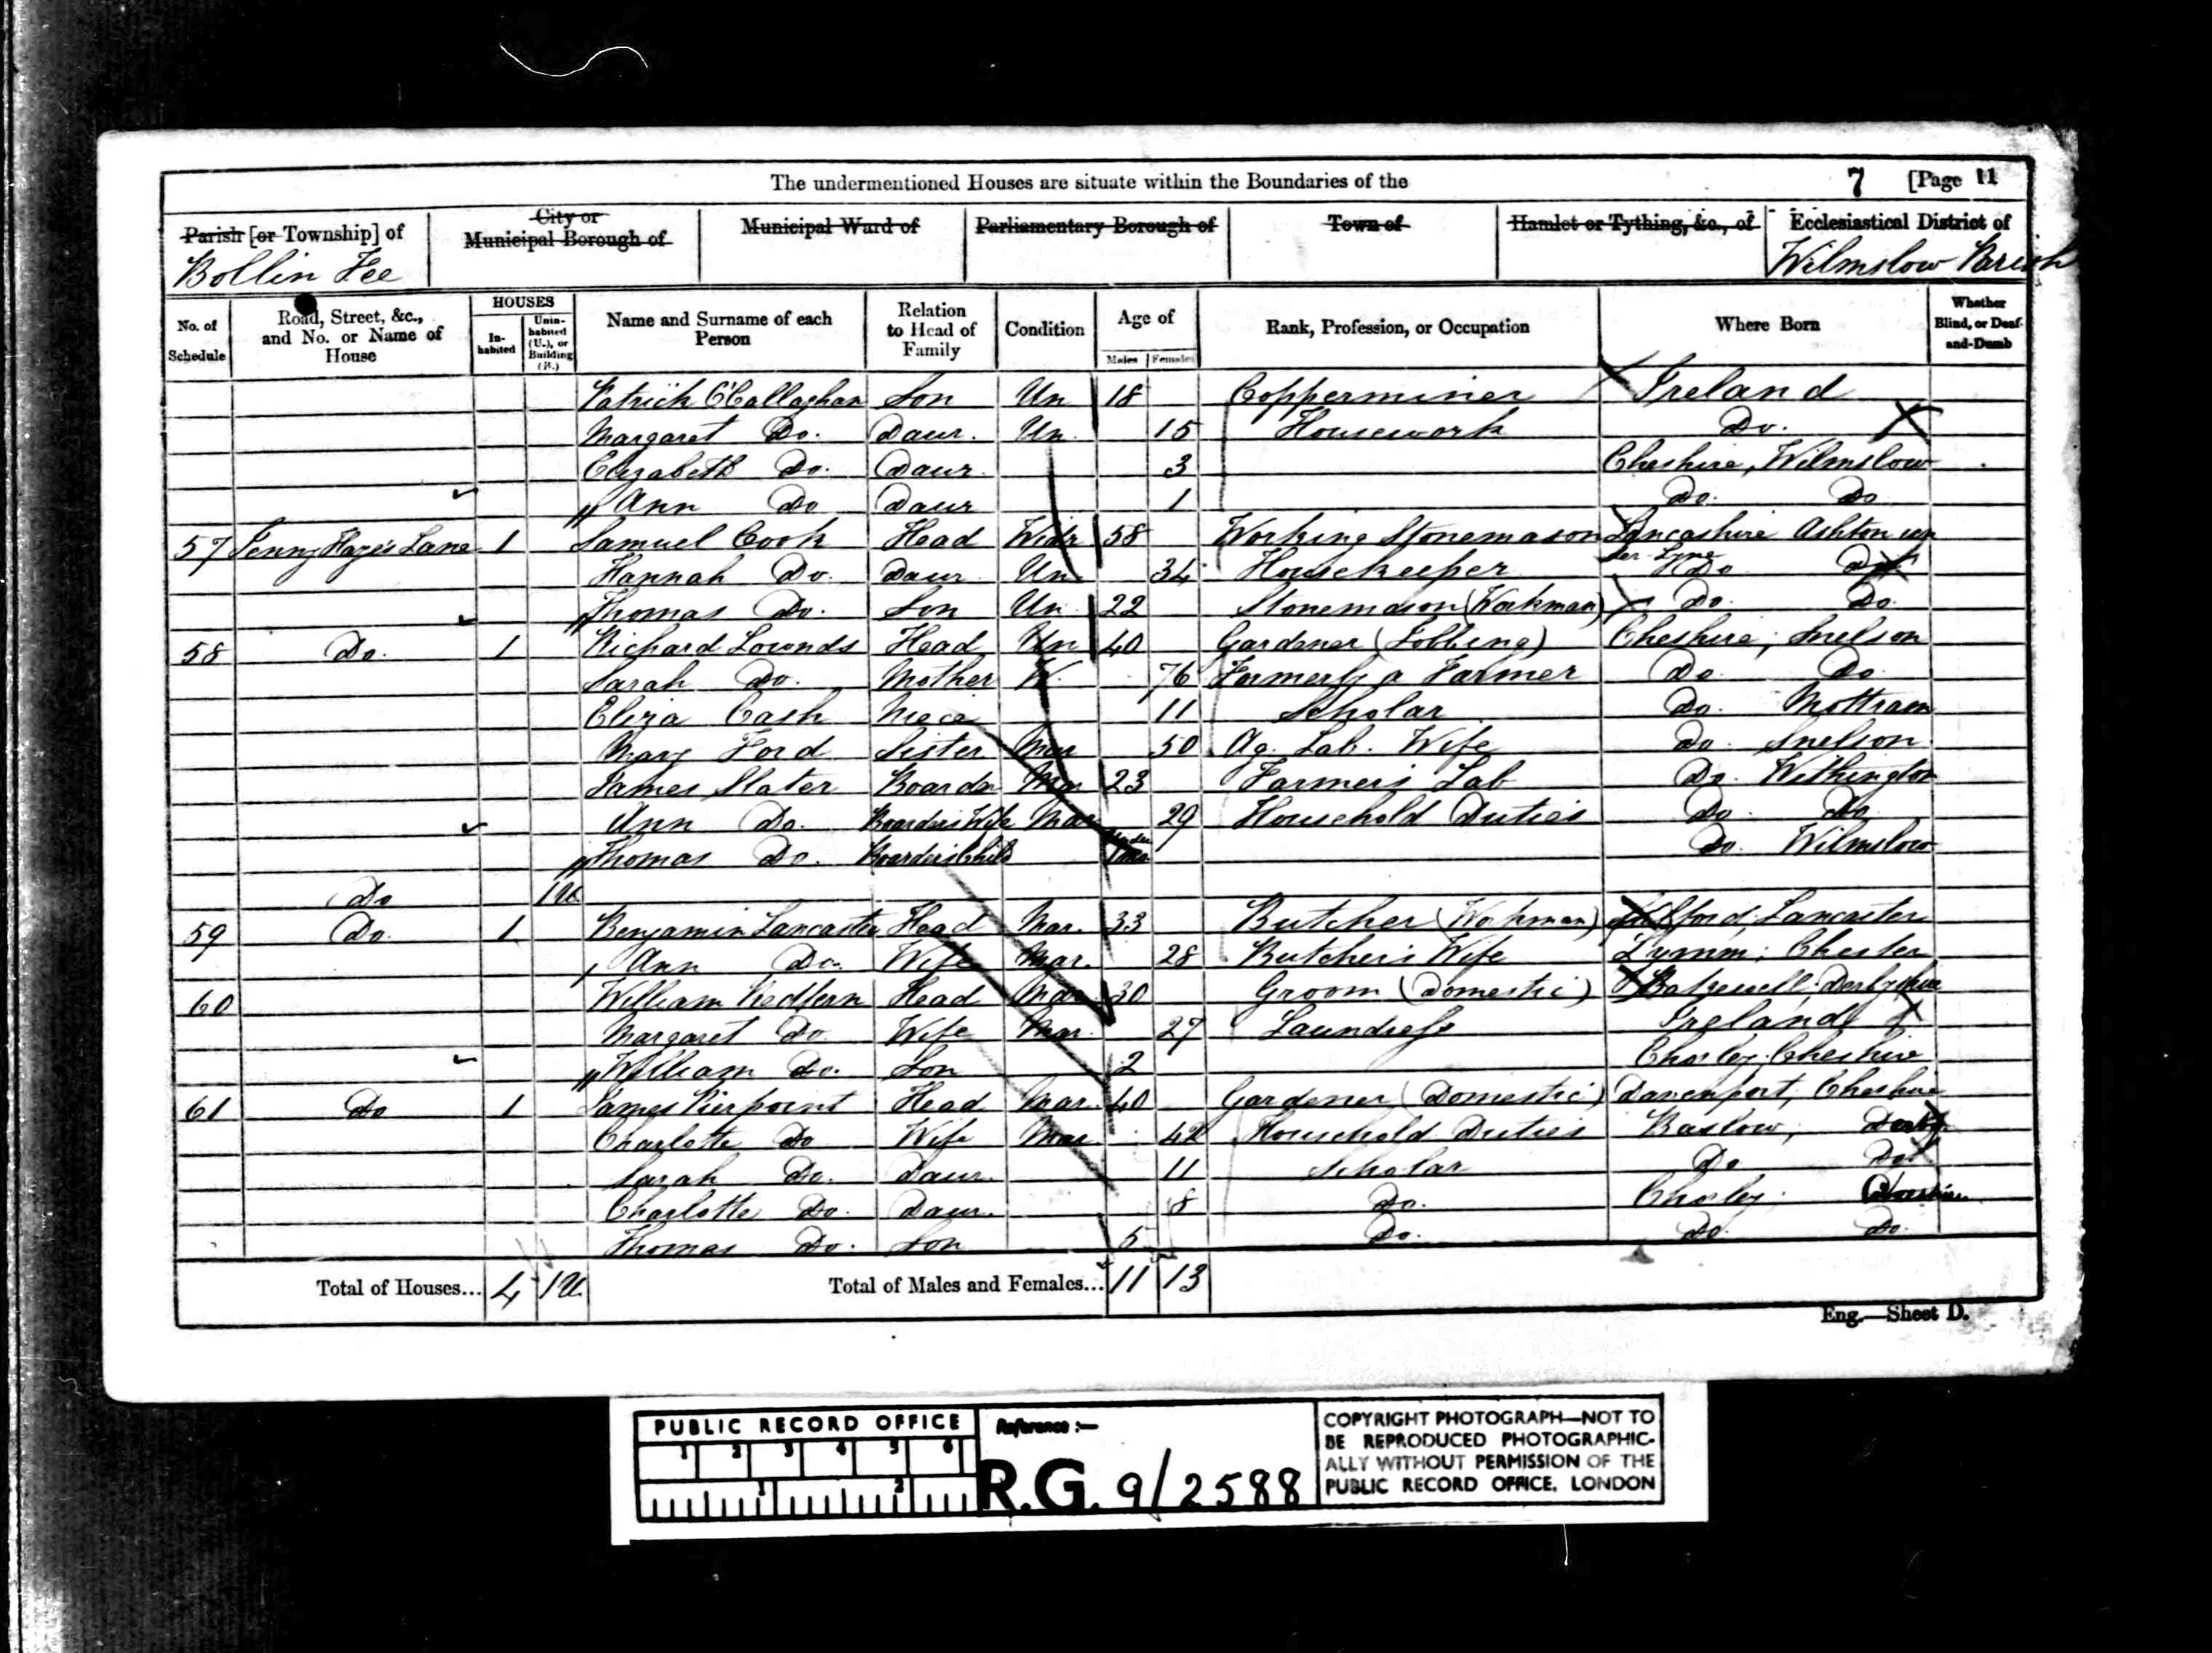 The undermentioned Houses are situate within the Boundaries of the 7 [Page 11
Parish [or Township] of City or Municipal Borough of Municipal Ward of Parliamentary Borough of Town of Hamlet or Tything, &c., of Ecclesiastical District of
Bollin Fee Wilmslow Parish
No. of Schedule Road, Street, &c., and No. or Name of House HOUSES Inhabited Uninhabited (U.), or Building (B.) Name and Surname of each Person Relation to Head of Family Condition Age of Males Females Rank, Profession, or Occupation Where Born Whether Blind, or Deaf-and-Dumb
Patrick O'Callaghan Son Un 18 Copperminer Ireland
Margaret Do. Daur. Un. 15 Housework Do.
Elizabeth Do. Daur. 3 Cheshire, Wilmslow
Ann Do Daur 1 Do. Do
57 Lane 1 Samuel Cook Head Widr 58 Working Stonemason Lancashire Ashton un
der Lyne
Hannah Do. Daur Un. 34 Housekeeper Do Do
Thomas Do. Son Un. 22 Stonemason (Workman) Do. Do.
58 Do. 1 Richard Lownds Head Un 40 Gardener (Jobbing) Cheshire, Snelson
Sarah Do. Mother W. 76 Formerly a Farmer Do. Do.
Eliza Cash Niece 11 Scholar Do. Mottram
Mary Ford Sister Mar 50 Ag. Lab. Wife Do. Snelson
James Slater Boarder Mar 23 Farmer's Lab Do. Withington
Ann Do. Boarder's Wife Mar 29 Household Duties Do. Do.
Thomas Do. Boarder's Child Do. Wilmslow
Do 1U
59 Do. 1 Benjamin Lancaster Head Mar. 33 Butcher (Workman) Lancaster
Ann Do. Wife Mar. 28 Butcher's Wife Lymm; Chester
60 William Redfern Head Mar. 30 Groom (Domestic) Bakewell; Derbyshire
Margaret Do. Wife Mar. 27 Laundress Ireland
William Do. Son 2 Chorley; Cheshire
61 Do 1 James Pierpoint Head Mar. 40 Gardener (Domestic) Davenport; Cheshire
Charlotte Do Wife Mar. 42 Household Duties Baslow; Derby
Sarah Do. Daur. 11 Scholar Do Do.
Charlotte Do. Daur. 8 Do. Chorley. Cheshire
Thomas Do. Son 5 Do. Do. Do.
Total of Houses... 4 1U. Total of Males and Females... 11 13
Eng.—Sheet D.
PUBLIC RECORD OFFICE
1 2 3 4 5 6
1 2
Reference :—
R.G. 9/2588
COPYRIGHT PHOTOGRAPH—NOT TO
BE REPRODUCED PHOTOGRAPHIC-
ALLY WITHOUT PERMISSION OF THE
PUBLIC RECORD OFFICE, LONDON